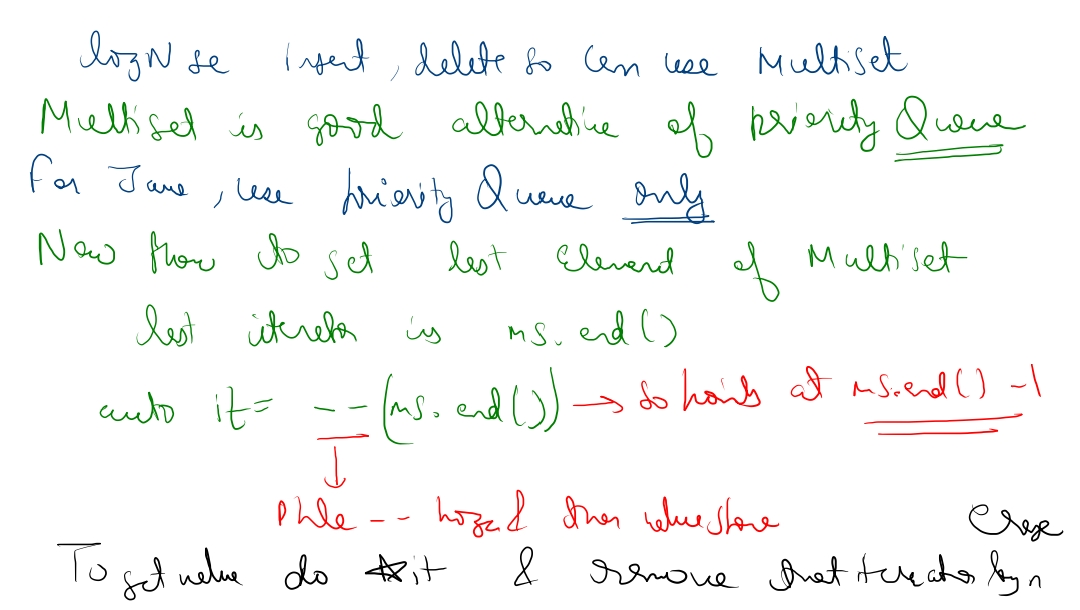 logN se Insert, delete so can use Multiset
Multiset is good alternative of priority Queue
For Java, use priority Queue only
Now how to get last Element of Multiset
last iterator is ms.end()
auto it = --(ms.end()) → So points at ms.end() -1
Phle -- hoga & then value store
erase
To get value do *it & remove that iterator by